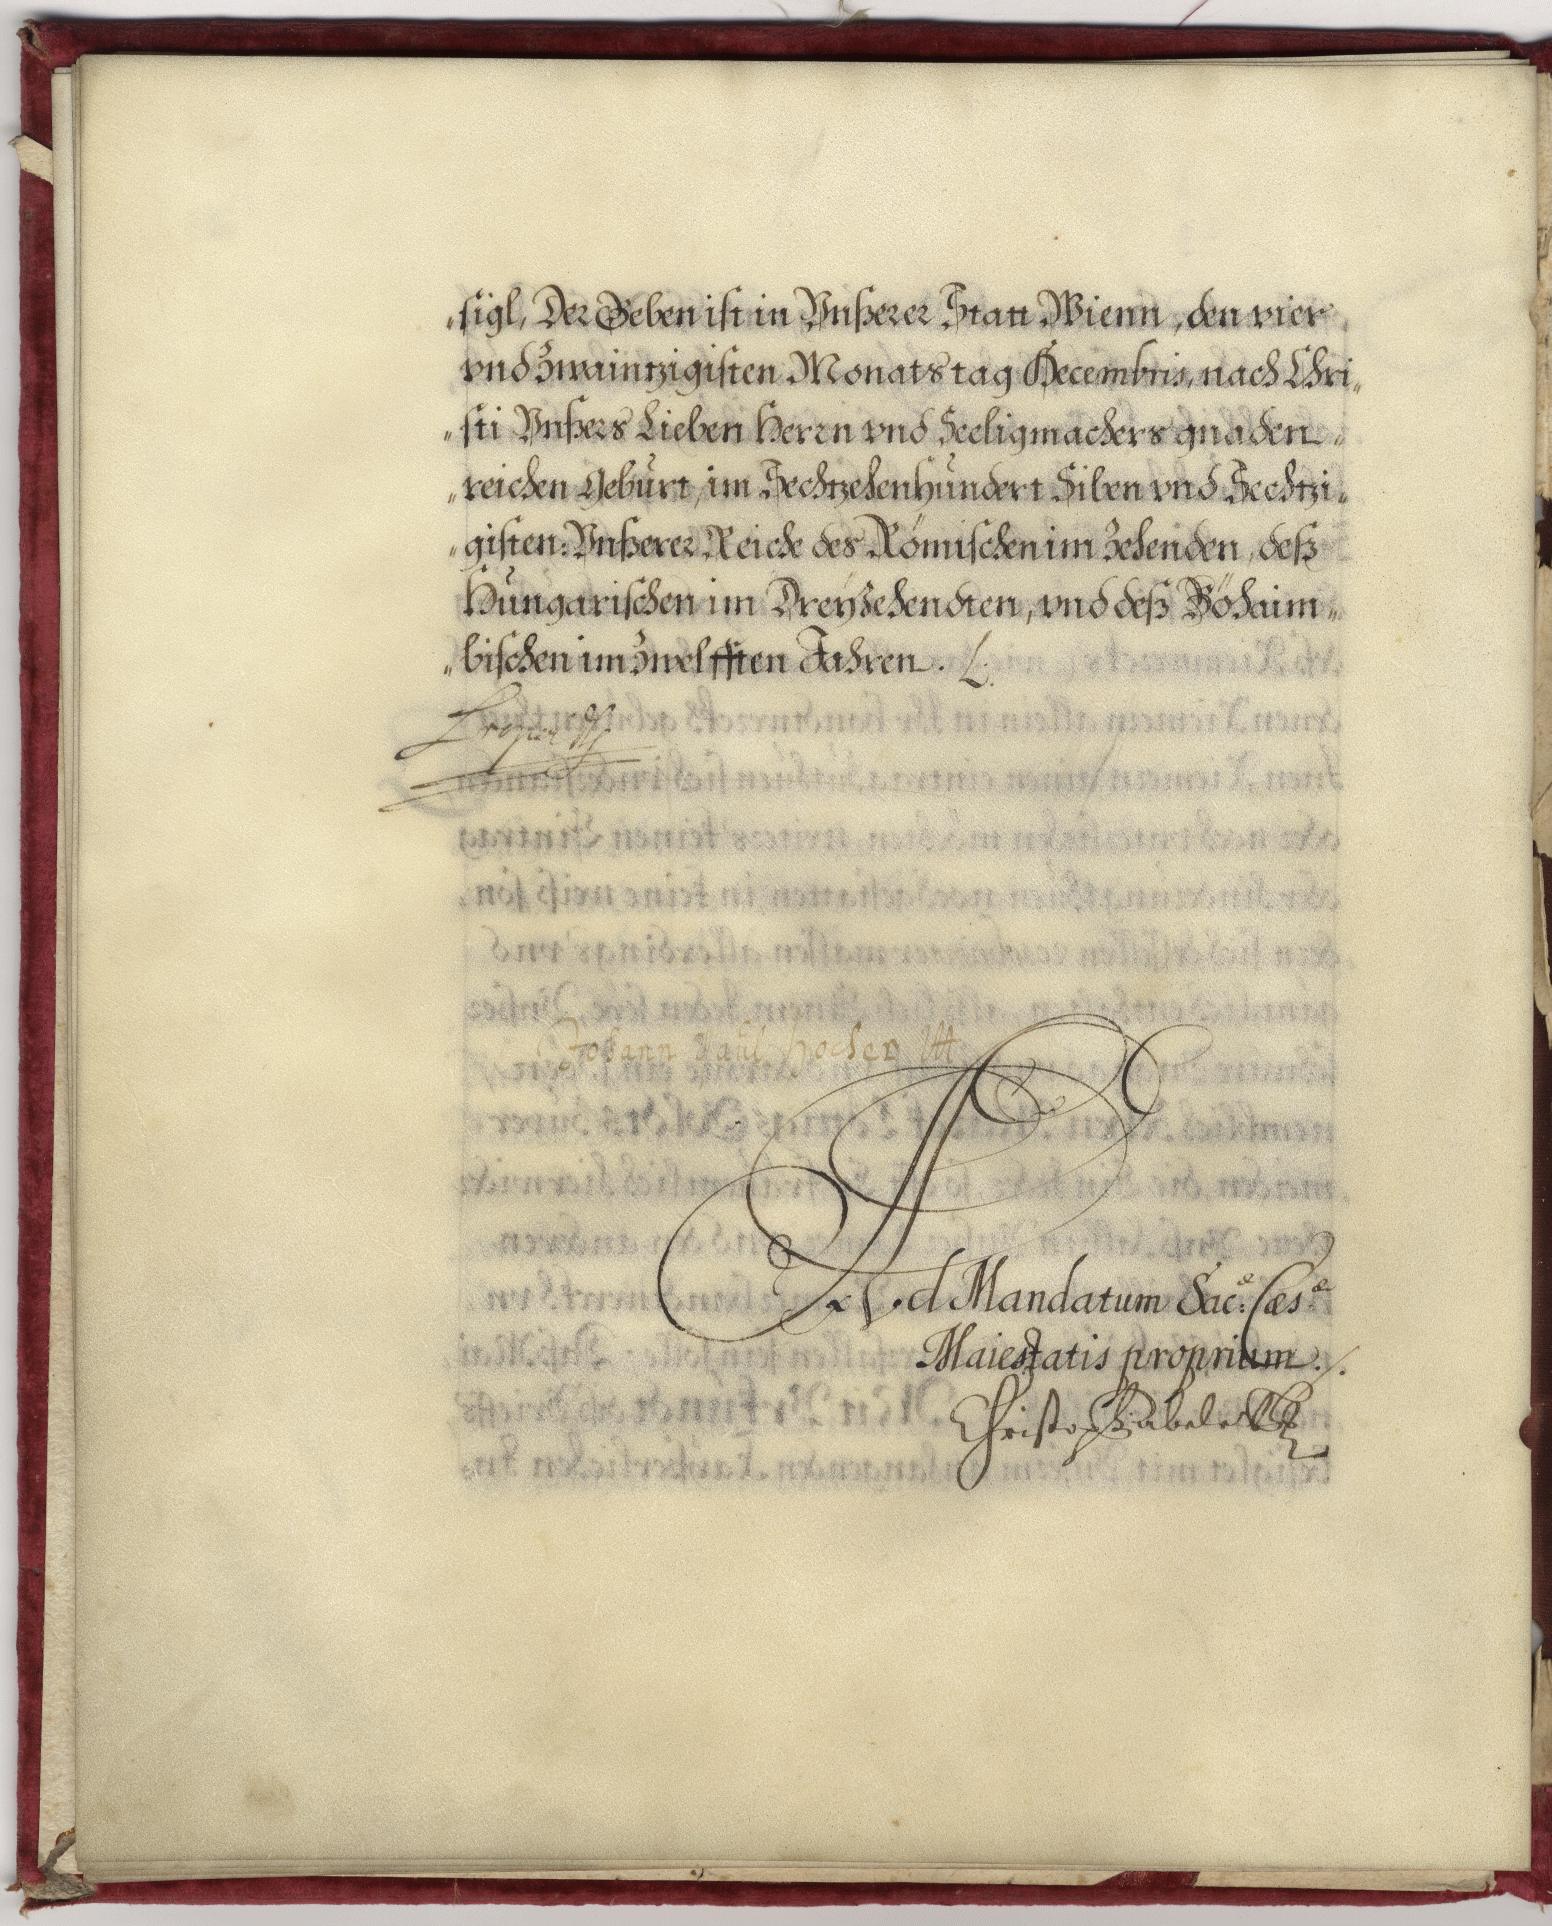 „sigl, Der Geben ist in Vnßerer Statt Wienn, den vier
vnd Zwaintzigisten Monatstag Decembris, nach Chri„
„sti Vnßers Lieben Herrn vnd Seeligmachers gnaden„
„reichen Geburt, im Sechtzehenhundert Siben vnd Sechtzi„
„gisten: Vnßerer Reiche des Römischen im Zehenden, deß
Hungarischen im Dreyzehendten, vnd deß Böhaim„
„bischen im Zwelfften Jahren.
Leopold
Johann Paul Hocher
Ad Mandatum Sac:ae Caesae
Maiestatis proprium./.
Christoph Abele